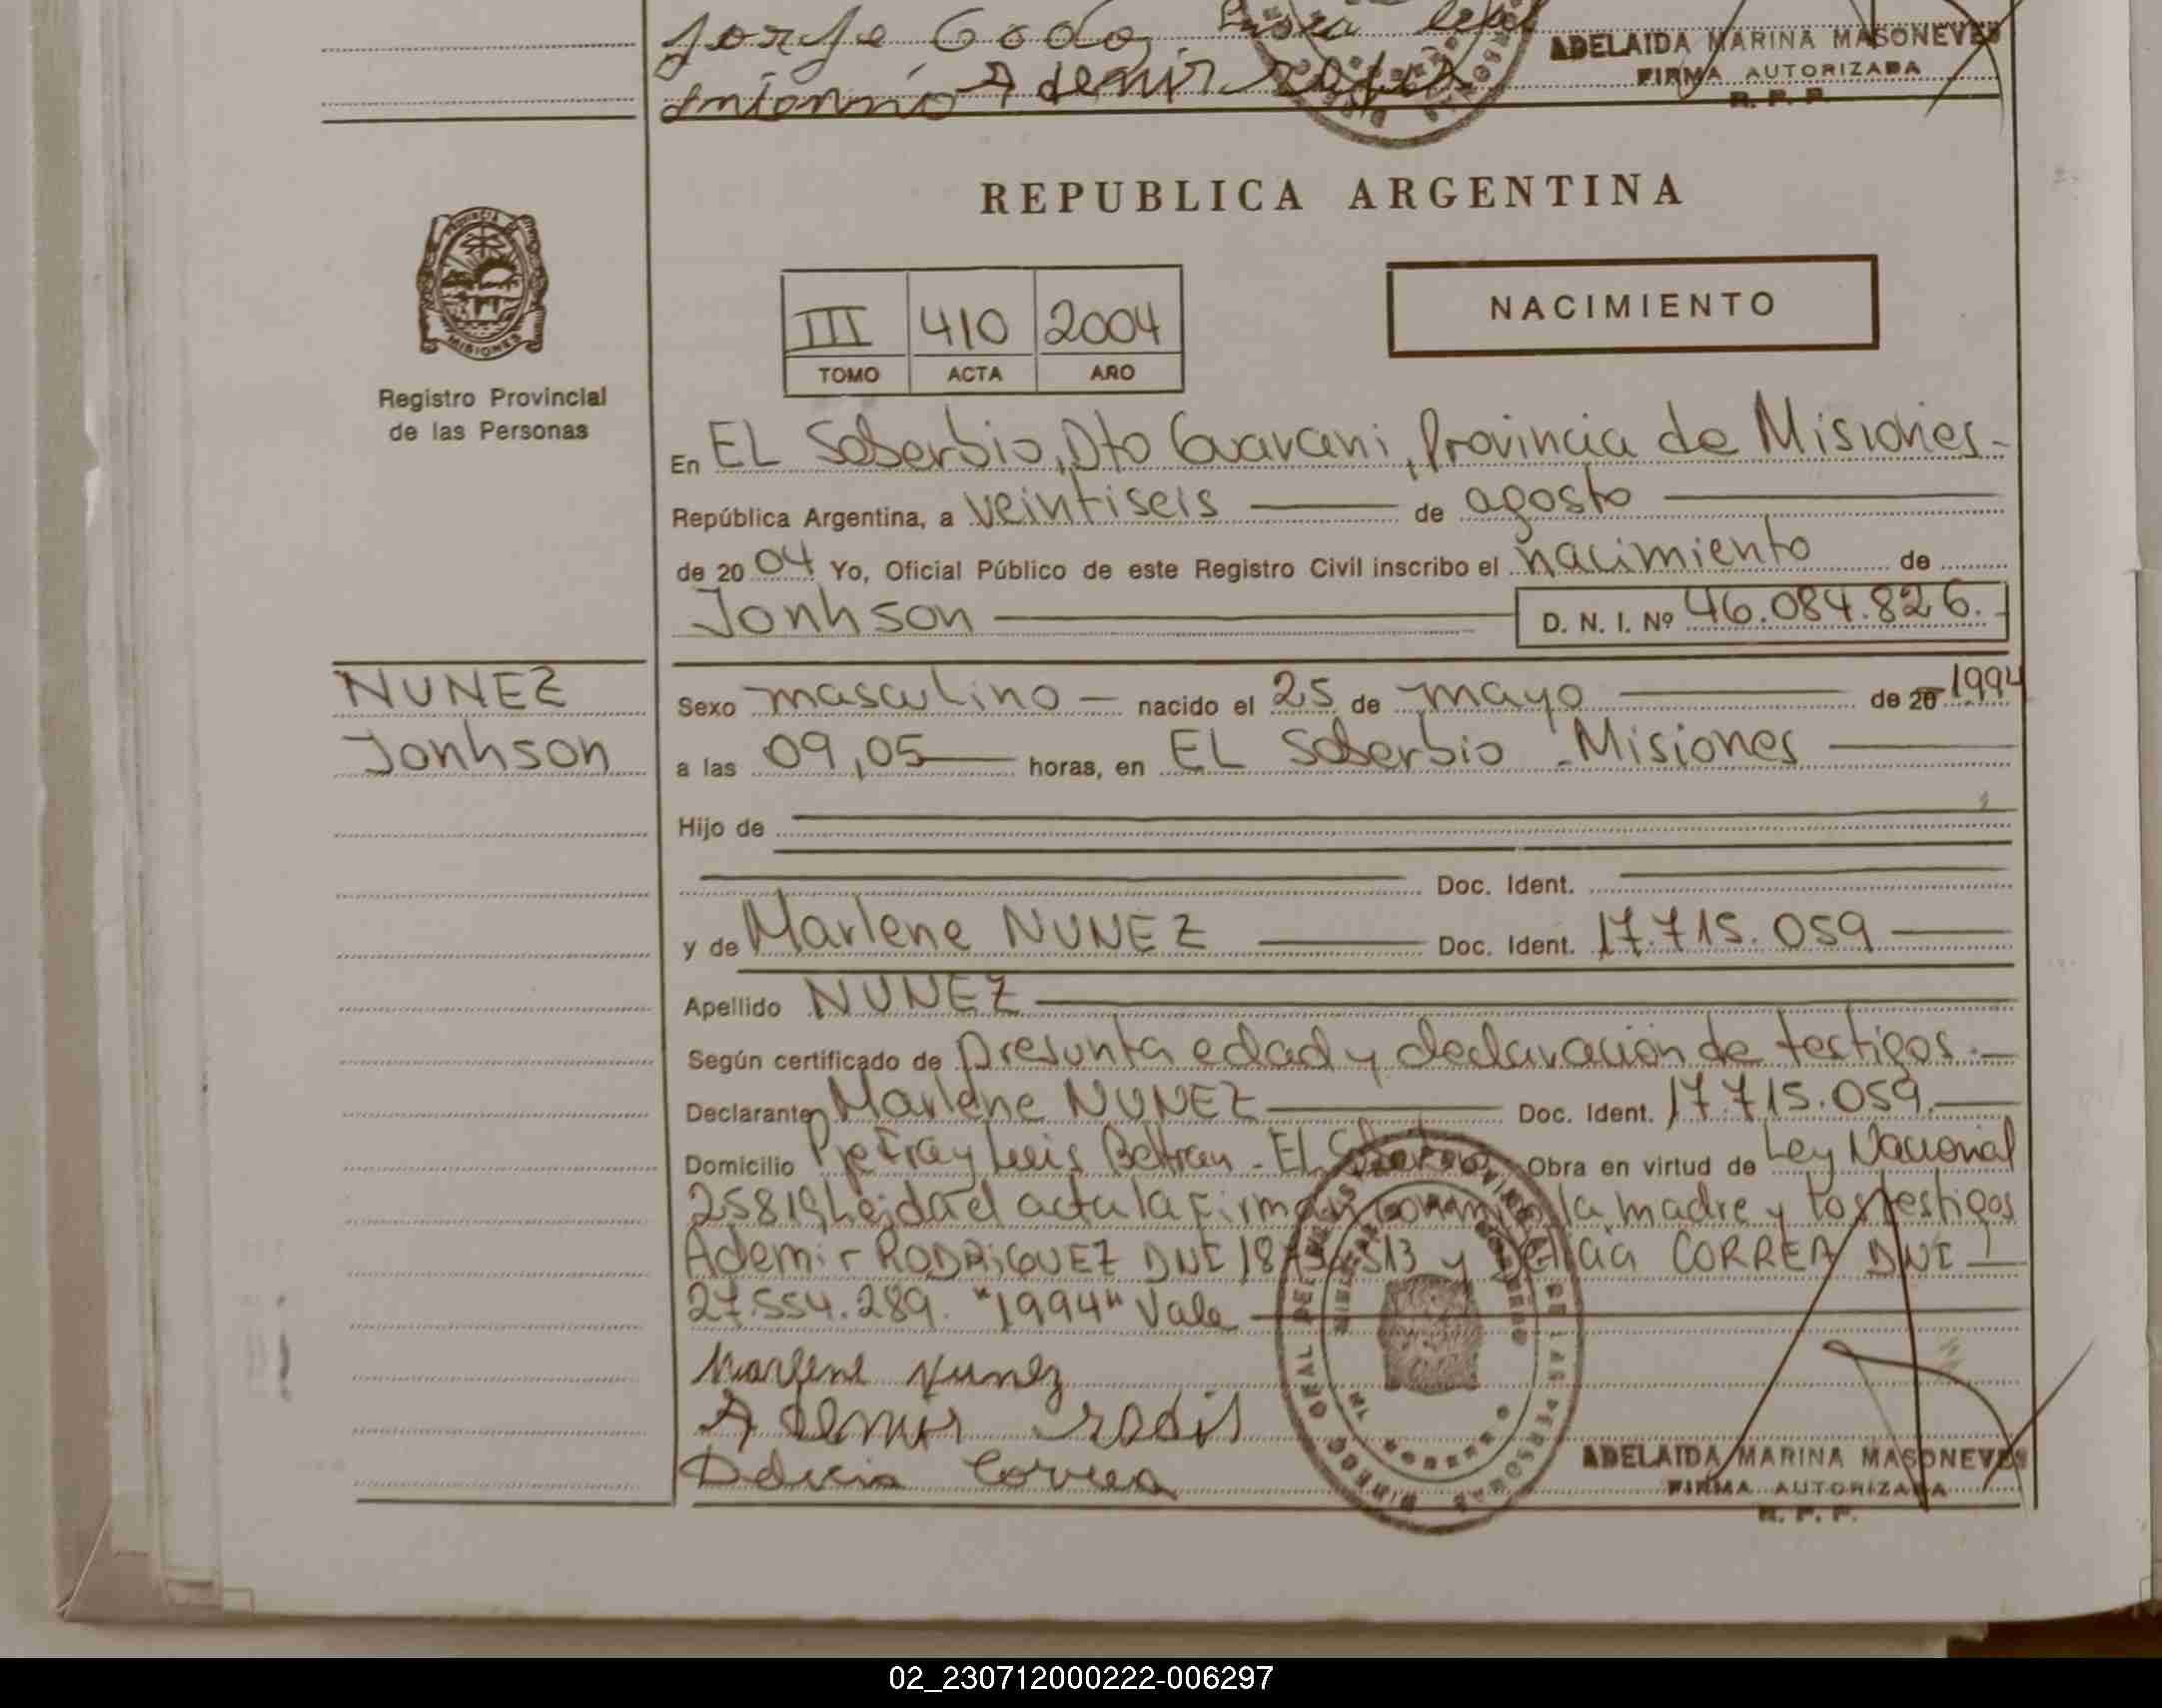 Jorge Godoy
Antonnio Ademir
ADELAIDA MARINA MASONEVES
FIRMA AUTORIZADA
R. P. P.
REPUBLICA ARGENTINA
PROVINCIA
MISIONES
Registro Provincial
de las Personas
III 410 2004
TOMO ACTA AÑO
NACIMIENTO
En EL Soberbio, Dto Guarani, Provincia de Misiones-
República Argentina, a veintiseis de agosto
de 2004 Yo, Oficial Público de este Registro Civil inscribo el nacimiento de
Jonhson D. N. I. Nº 46.084.826.
NUNEZ
Jonhson
Sexo masculino nacido el 25 de mayo de 20 1994
a las 09,05 horas, en EL Soberbio - Misiones
Hijo de
Doc. Ident.
y de Marlene NUNEZ Doc. Ident. 17.715.059
Apellido NUNEZ
Según certificado de presunta edad y declaración de testigos.-
Declarante Marlene NUNEZ Doc. Ident. 17.715.059
Domicilio Pje Fray Luis Beltran - EL Soberbio Obra en virtud de Ley Nacional
25819 Leida el acta la firman la madre y los testigos
Ademir RODRIGUEZ DNI y Delicia CORREA DNI
27.554.289. "1994" Vale
Marlene Nunez
Ademir
Delicia Correa
ADELAIDA MARINA MASONEVES
FIRMA AUTORIZADA
R. P. P.
02_230712000222-006297